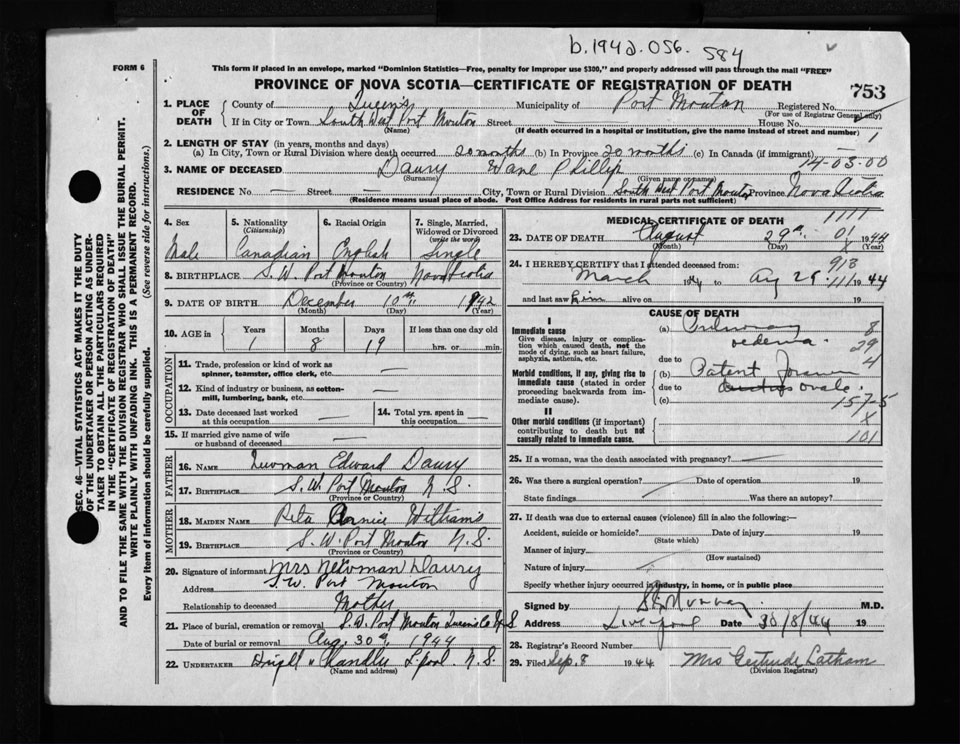 b.1942.056. 584
FORM 6
This form if placed in an envelope, marked "Dominion Statistics—Free, penalty for improper use $300," and properly addressed will pass through the mail "FREE"
PROVINCE OF NOVA SCOTIA—CERTIFICATE OF REGISTRATION OF DEATH
753
1. PLACE OF DEATH
County of Queens Municipality of Port Mouton Registered No.
(For use of Registrar General only)
If in City or Town South West Port Mouton Street — House No.
(Name) (If death occurred in a hospital or institution, give name instead of street and number)
1
2. LENGTH OF STAY (in years, months and days)
(a) In City, Town or Rural Division where death occurred 20 months (b) In Province 20 months (c) In Canada (if immigrant) —
14-03-00
3. NAME OF DECEASED Daury Wane Phillip
(Surname) (Given name or names)
RESIDENCE No — Street — City, Town or Rural Division South West Port Mouton Province Nova Scotia
(Residence means usual place of abode. Post Office Address for residents in rural parts not sufficient)
4. Sex
Male
5. Nationality
(Citizenship)
Canadian
6. Racial Origin
English
7. Single, Married, Widowed or Divorced
(write the word)
Single
8. BIRTHPLACE S. W. Port Mouton Nova Scotia
(Province or Country)
9. DATE OF BIRTH December 10th 1942
(Month) (Day) (Year)
10. AGE in
Years Months Days If less than one day old
1 8 19 hrs. or min.
OCCUPATION
11. Trade, profession or kind of work as
spinner, teamster, office clerk, etc. —
12. Kind of industry or business, as cotton-
mill, lumbering, bank, etc. —
13. Date deceased last worked
at this occupation —
14. Total yrs. spent in
this occupation —
15. If married give name of wife
or husband of deceased —
FATHER
16. NAME Newman Edward Daury
17. BIRTHPLACE S. W. Port Mouton N. S.
(Province or Country)
MOTHER
18. MAIDEN NAME Rita Williams
19. BIRTHPLACE S. W. Port Mouton N. S.
(Province or Country)
20. Signature of informant Mrs Newman Daury
Address S. W. Port Mouton
Relationship to deceased Mother
21. Place of burial, cremation or removal S. W. Port Mouton Queens Co N S
Date of burial or removal Aug. 30th 1944
22. UNDERTAKER Chandler L.pool. N. S.
(Name and address)
MEDICAL CERTIFICATE OF DEATH
1111
23. DATE OF DEATH August 29th 01 1944
(Month) (Day) X (Year)
24. I HEREBY CERTIFY that I attended deceased from: 913
March 1944 to Aug 29 111 1944
and last saw him alive on 19
CAUSE OF DEATH
I
Immediate cause
Give disease, injury or complication which caused death, not the mode of dying, such as heart failure, asphyxia, asthenia, etc.
(a) Pulmonary 8
oedema. 29
due to 4
Morbid conditions, if any, giving rise to immediate cause (stated in order proceeding backwards from immediate cause).
(b) Patent foramen
due to ovale.
(c) 157-5
II
Other morbid conditions (if important) contributing to death but not causally related to immediate cause.
X
101
25. If a woman, was the death associated with pregnancy? —
26. Was there a surgical operation? Date of operation 19
State findings Was there an autopsy?
27. If death was due to external causes (violence) fill in also the following:—
Accident, suicide or homicide? Date of injury 19
(State which)
Manner of injury
(How sustained)
Nature of injury
Specify whether injury occurred in industry, in home, or in public place
Signed by Murray M.D.
Address Liverpool Date 30/8/44 19
28. Registrar's Record Number
29. Filed Sep. 8 1944 Mrs Gertrude Latham
(Division Registrar)
SEC. 46—VITAL STATISTICS ACT MAKES IT THE DUTY
OF THE UNDERTAKER OR PERSON ACTING AS UNDER-
TAKER TO OBTAIN ALL THE PARTICULARS REQUIRED
IN THE "CERTIFICATE OF REGISTRATION OF DEATH"
AND TO FILE THE SAME WITH THE DIVISION REGISTRAR WHO SHALL ISSUE THE BURIAL PERMIT.
WRITE PLAINLY WITH UNFADING INK. THIS IS A PERMANENT RECORD.
Every item of information should be carefully supplied. (See reverse side for instructions.)